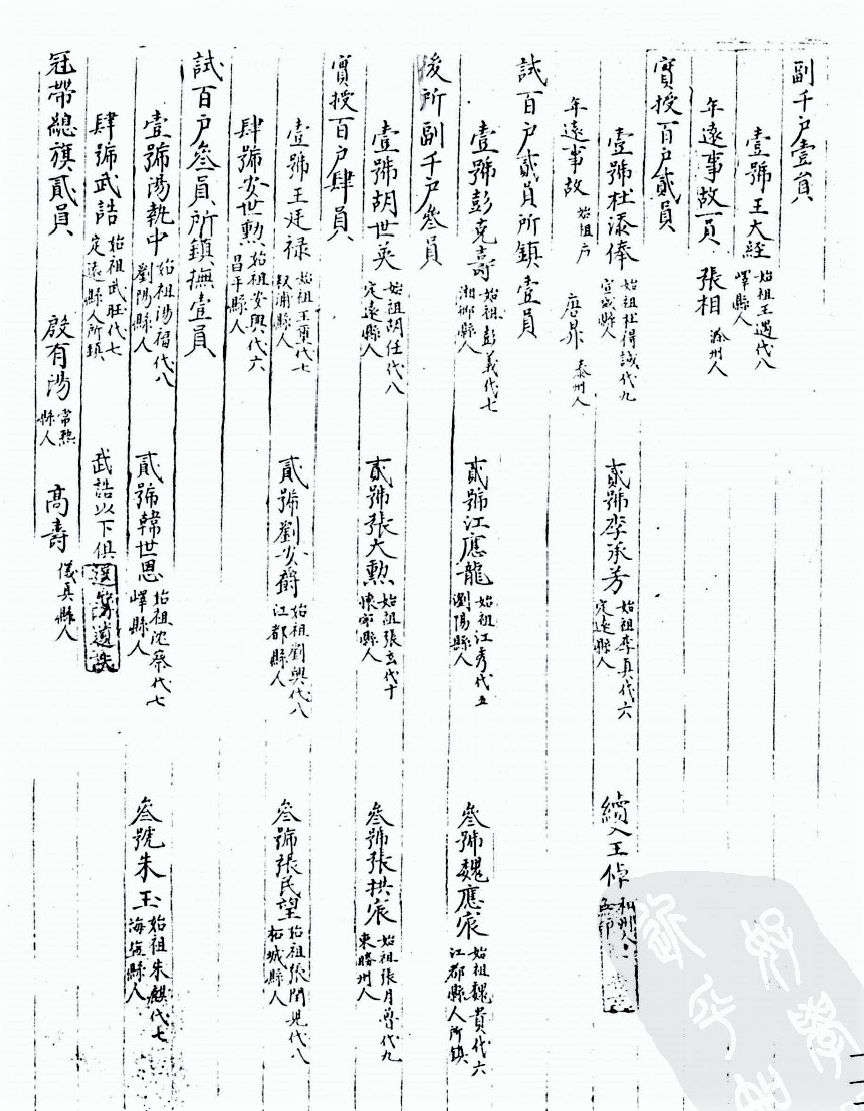 副千戶壹員
壹號王大經 始祖王遇代八 嶧縣人
年遠事故一員 張相 滁州人
實授百戶貳員
壹號杜添俸 始祖杜得誠代九 宣城縣人 貳號李承芳 始祖李真代六 定遠縣人 續入王倬 和州人
年遠事故 始祖戶 唐昇 泰州人
試百戶貳員所鎮壹員
壹號彭克壽 始祖彭義代七 湘鄉縣人 貳號江應龍 始祖江秀代五 瀏陽縣人 叄號魏應宸 始祖魏貴代六 江都縣人所鎮
後所副千戶叄員
壹號胡世英 始祖胡任代八 定遠縣人 貳號張大勲 始祖張玄代十 懷寧縣人 叄號張拱宸 始祖張月魯代九 東勝州人
實授百戶肆員
壹號王廷禄 始祖王重代七 溆浦縣人 貳號劉安爵 始祖劉興代八 江都縣人 叄號張民望 始祖張閏児代八 柘城縣人
肆號安世勲 始祖安興代六 昌平縣人
試百戶叄員所鎮撫壹員
壹號湯執中 始祖湯福代八 劉陽縣人 貳號韓世恩 始祖沈蔡代七 嶧縣人 叄號朱玉 始祖朱麒代七 海塩縣人
肆號武誥 始祖武旺代七 定遠縣人所鎮 武誥以下俱選簿遺誤
冠帶總旗貳員 殷有湯 常熟縣人 高壽 儀真縣人